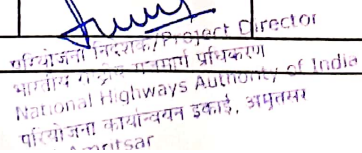 परियोजना निदेशक/Project Director
भारतीय राष्ट्रीय राजमार्ग प्राधिकरण
National Highways Authority of India
परियोजना कार्यान्वयन इकाई, अमृतसर
Amritsar